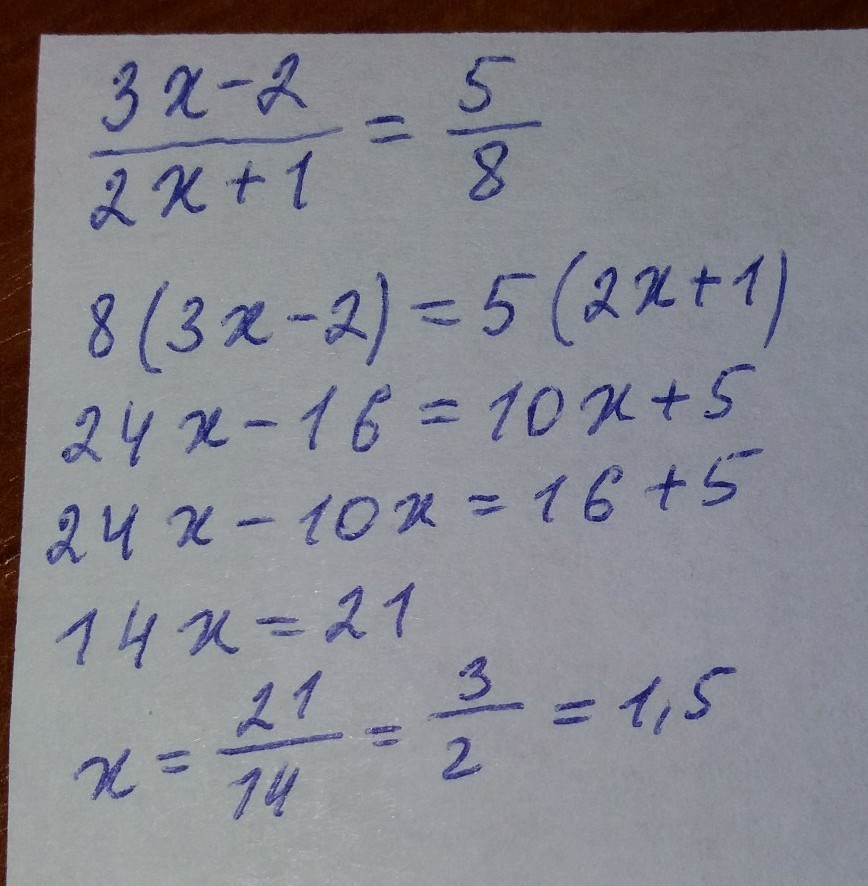 (3x-2)/(2x+1) = 5/8
8(3x-2)=5(2x+1)
24x-16=10x+5
24x-10x=16+5
14x=21
x=21/14=3/2=1,5